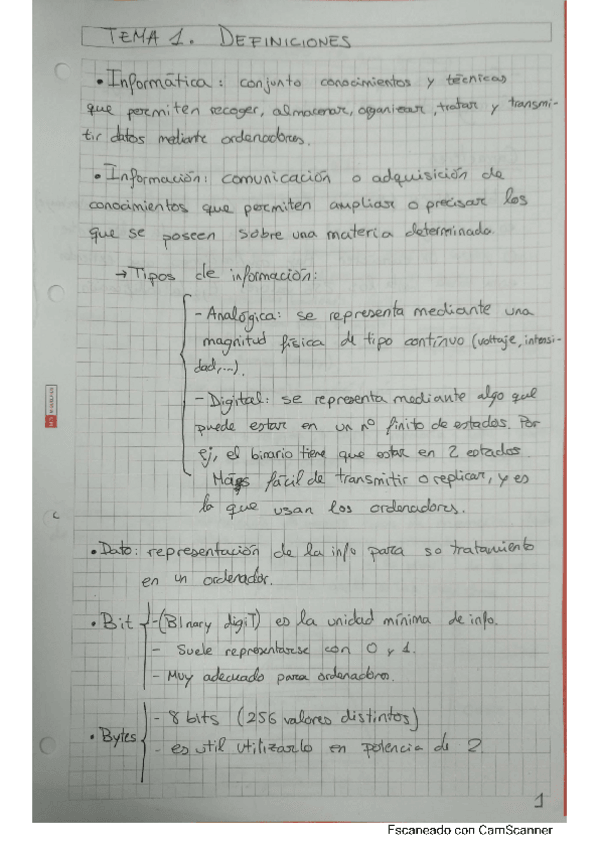 TEMA 1. DEFINICIONES
• Informática: conjunto conocimientos y técnicas
que permiten recoger, almacenar, organizar, tratar y transmi-
tir datos mediante ordenadores.
• Información: comunicación o adquisición de
conocimientos que permiten ampliar o precisar los
que se poseen sobre una materia determinada.
→ Tipos de información:
- Analógica: se representa mediante una
magnitud física de tipo contínuo (voltaje, intensi-
dad,...).
- Digital: se representa mediante algo que
puede estar en un nº finito de estados. Por
ej, el binario tiene que estar en 2 estados.
Más fácil de transmitir o replicar, y es
lo que usan los ordenadores.
• Dato: representación de la info para so tratamiento
en un ordenador.
• Bit - (BInary digiT) es la unidad mínima de info.
- Suele representarse con 0 y 1.
- Muy adecuado para ordenadores.
- 8 bits (256 valores distintos)
• Bytes
- es util utilizarlo en potencia de 2.
1
Escaneado con CamScanner